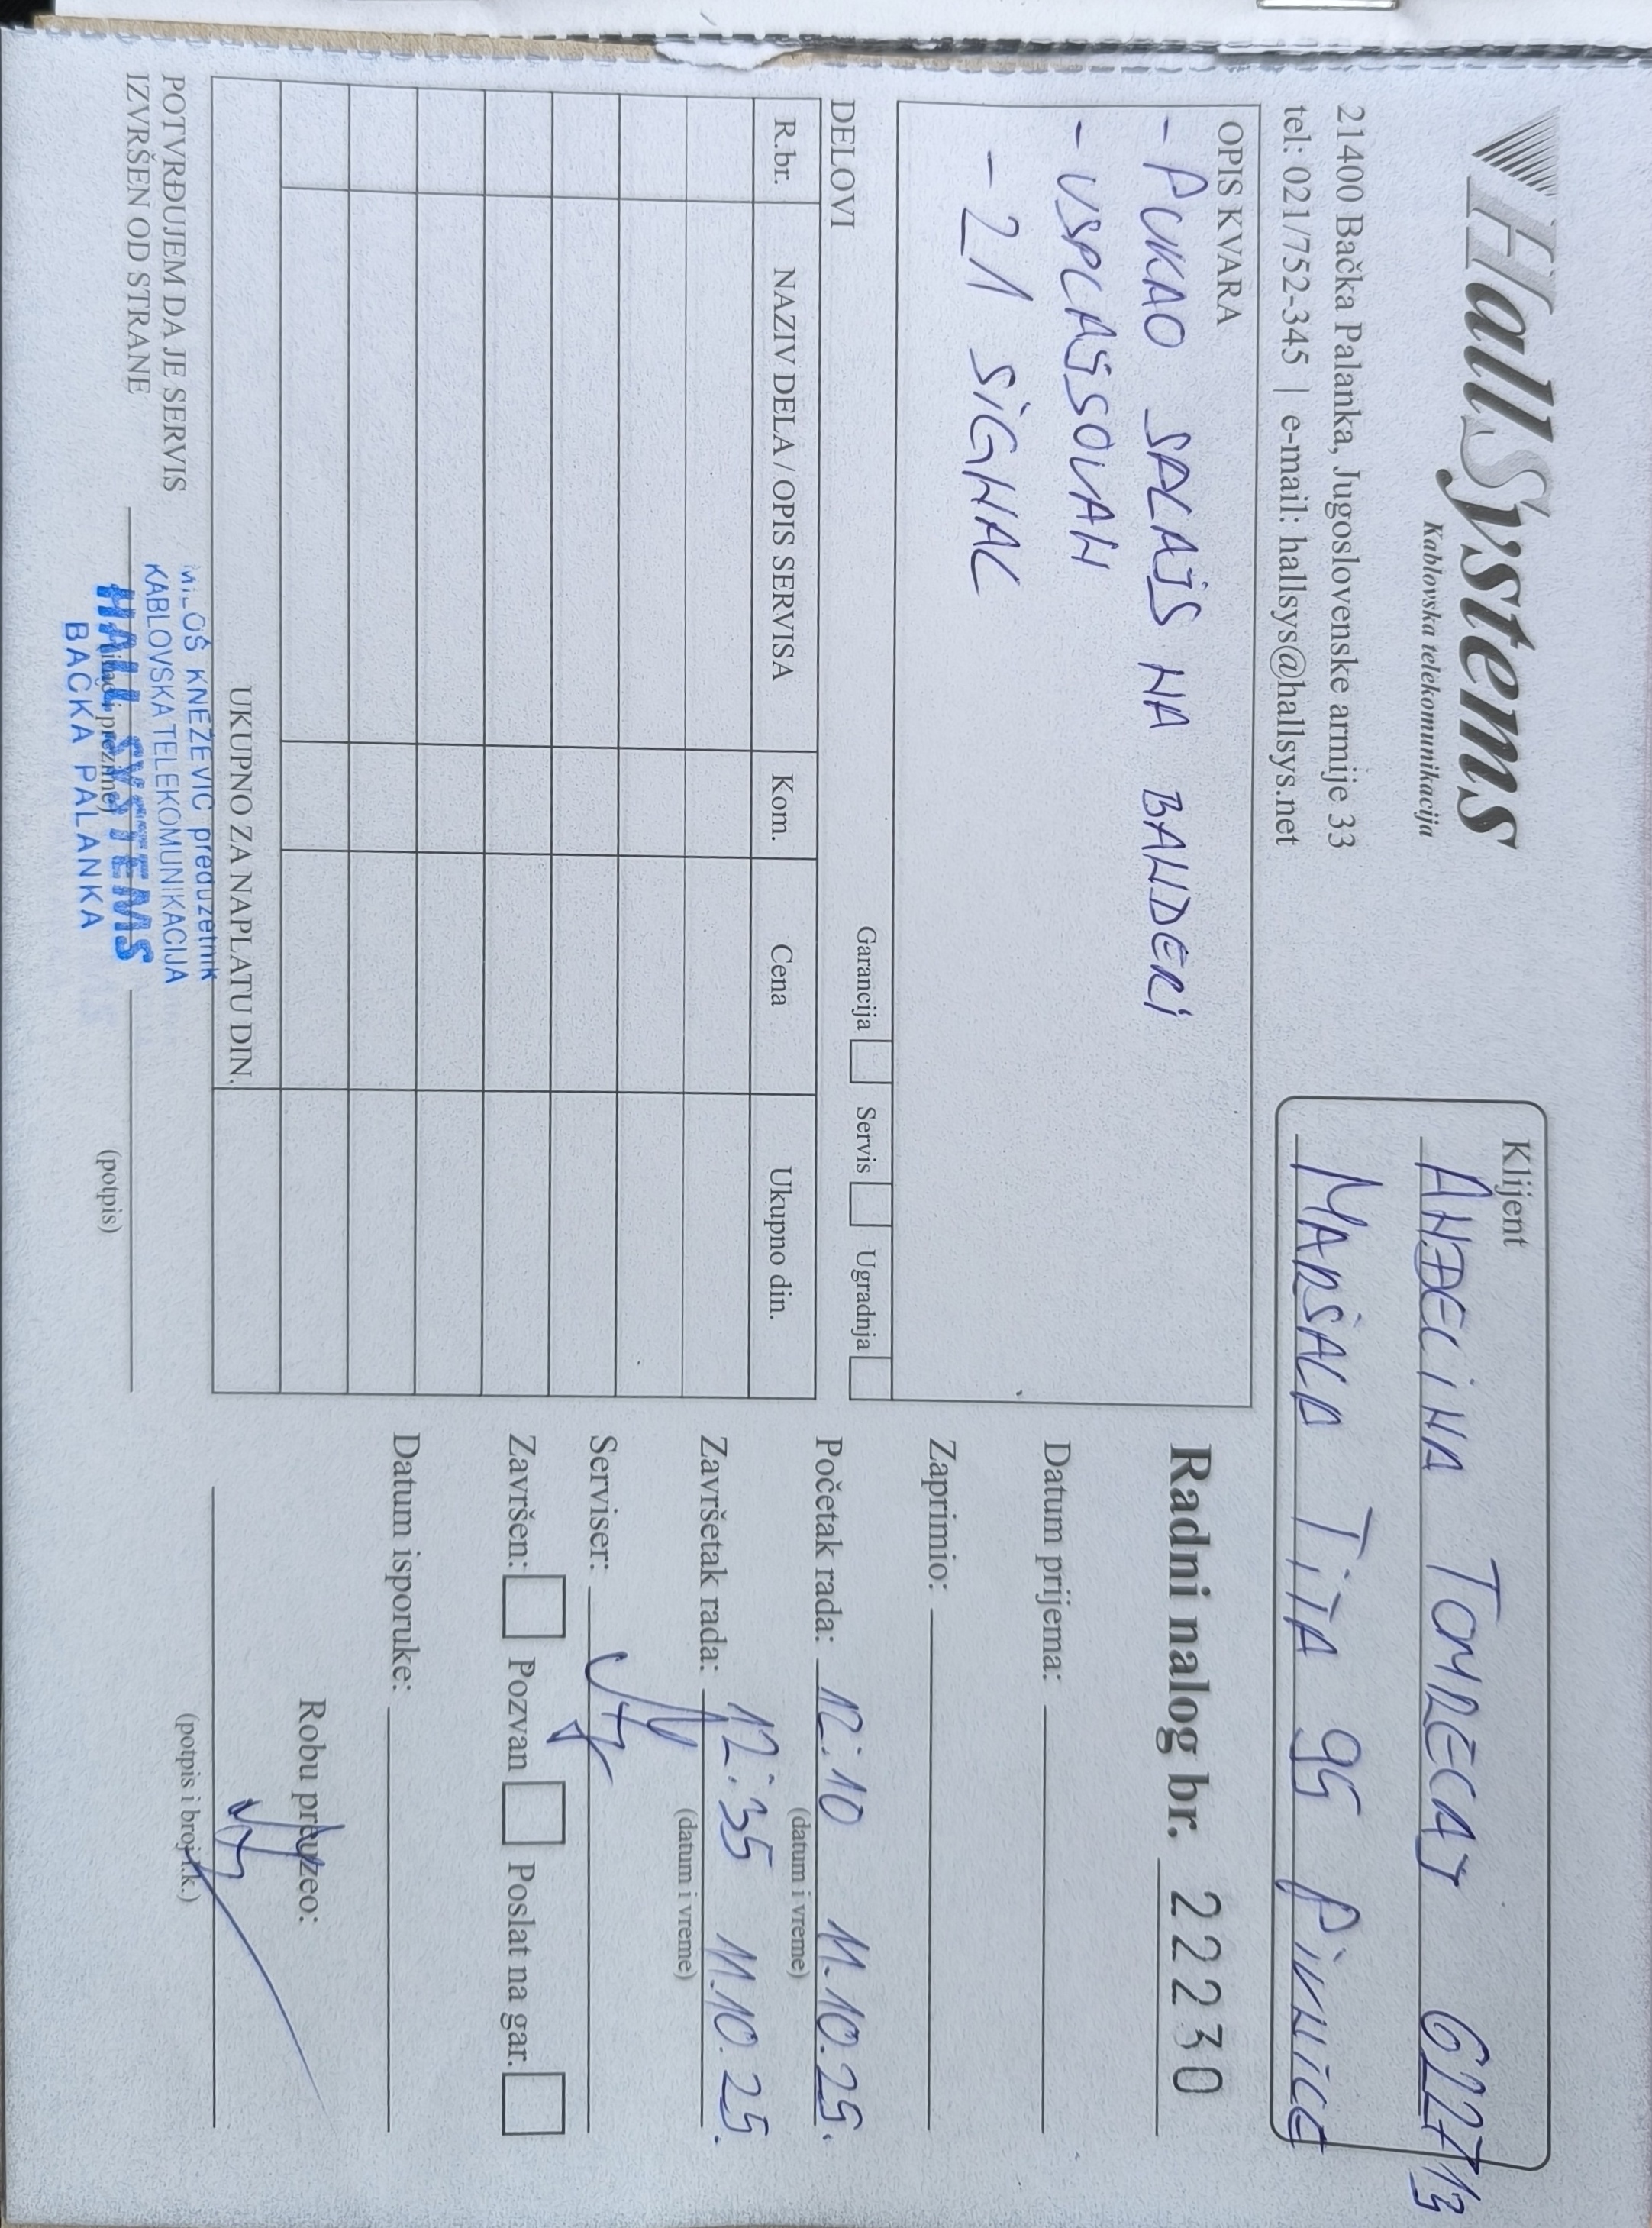 HallSystems
Kablovska telekomunikacija
21400 Bačka Palanka, Jugoslovenske armije 33
tel: 021/752-345 | e-mail: hallsys@hallsys.net
Klijent
ANĐELINA TOMREGAJ 622713
MARŠALA TITA 95 PIVNICE
OPIS KVARA
- PUKAO SPLAJS NA BANDERI
- USPLAJSOVAN
- 21 SIGNAL
Garancija Servis Ugradnja
DELOVI
R.br. NAZIV DELA / OPIS SERVISA Kom. Cena Ukupno din.
UKUPNO ZA NAPLATU DIN.
POTVRĐUJEM DA JE SERVIS
IZVRŠEN OD STRANE
MILOŠ KNEŽEVIĆ preduzetnik
KABLOVSKA TELEKOMUNIKACIJA
HALL SYSTEMS
BAČKA PALANKA
prezime)
(potpis)
Radni nalog br. 22230
Datum prijema:
Zaprimio:
Početak rada: 12:10 11.10.25.
(datum i vreme)
Završetak rada: 12:35 11.10.25.
(datum i vreme)
Serviser:
Završen: Pozvan Poslat na gar.
Datum isporuke:
Robu preuzeo:
(potpis i broj l.k.)